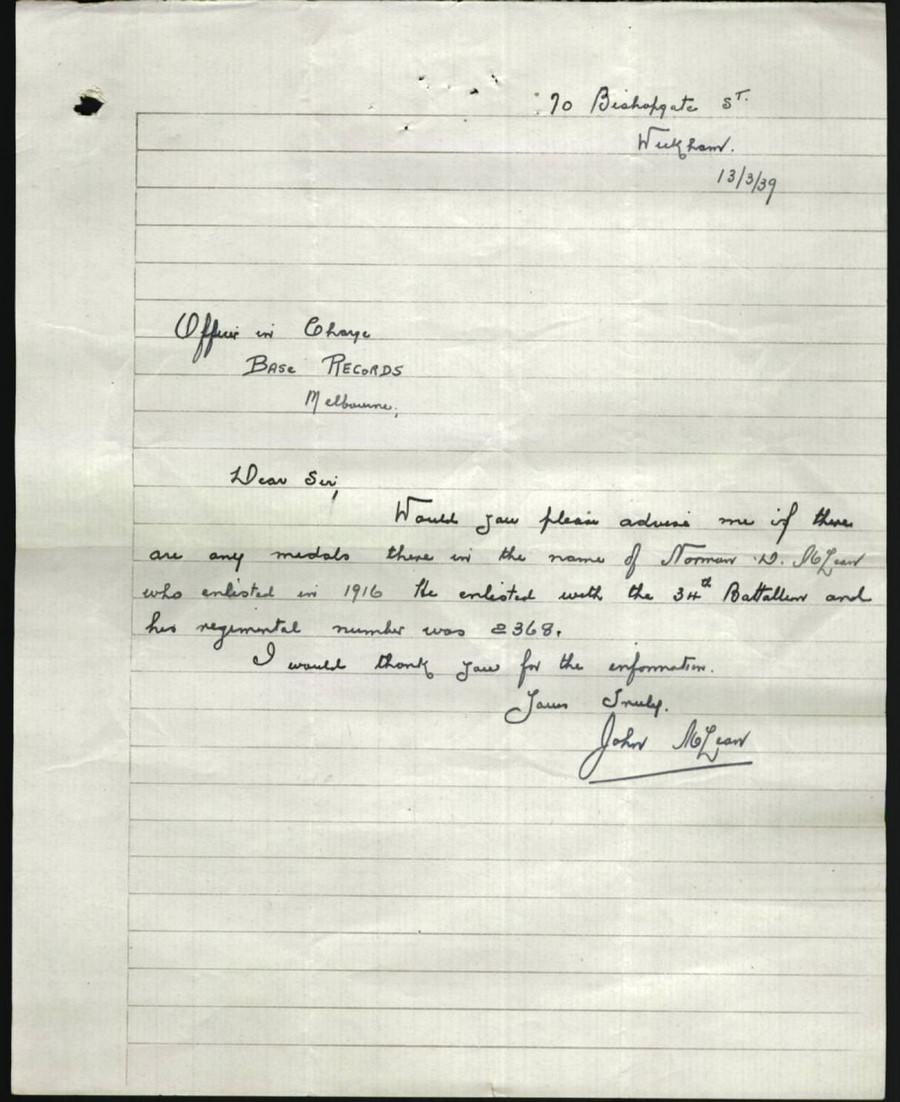 70 Bishopgate ST.
Wickham.
13/3/39
Officer in Charge
BASE RECORDS
Melbourne,
Dear Sir,
Would you please advise me if there
are any medals there in the name of Norman D. McLean
who enlisted in 1916 He enlisted with the 34th Battallion and
his regimental number was 2368.
I would thank you for the information.
Yours Truly.
John McLean